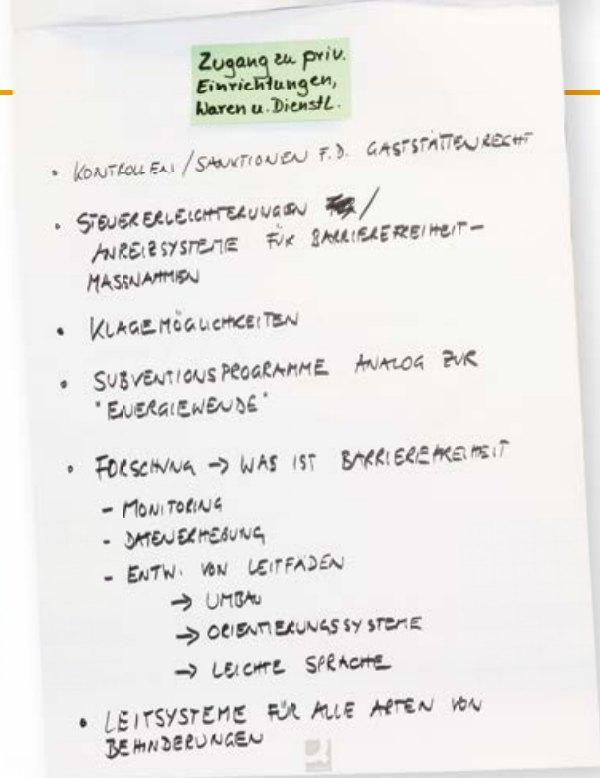 Zugang zu priv.
Einrichtungen,
Waren u. Dienstl.
• KONTROLLEN / SANKTIONEN F.D. GASTSTÄTTENRECHT
• STEUERERLEICHTERUNGEN /
ANREIZSYSTEME FÜR BARRIEREFREIHEIT-
MASSNAHMEN
• KLAGEMÖGLICHKEITEN
• SUBVENTIONSPROGRAMME ANALOG ZUR
"ENERGIEWENDE"
• FORSCHUNG → WAS IST BARRIEREFREIHEIT
- MONITORING
- DATENERHEBUNG
- ENTW. VON LEITFÄDEN
→ UMBAU
→ ORIENTIERUNGSSYSTEME
→ LEICHTE SPRACHE
• LEITSYSTEME FÜR ALLE ARTEN VON
BEHINDERUNGEN